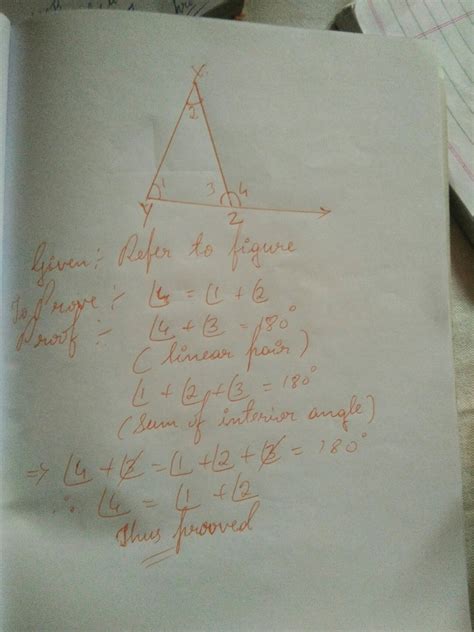 X
2
1
3
4
Y
Z
Given :- Refer to figure
To Prove :- ∠4 = ∠1 + ∠2
Proof :- ∠4 + ∠3 = 180°
(linear pair)
∠1 + ∠2 + ∠3 = 180°
(Sum of interior angle)
⇒ ∠4 + ∠3 = ∠1 + ∠2 + ∠3 = 180°
∴ ∠4 = ∠1 + ∠2
Thus prooved